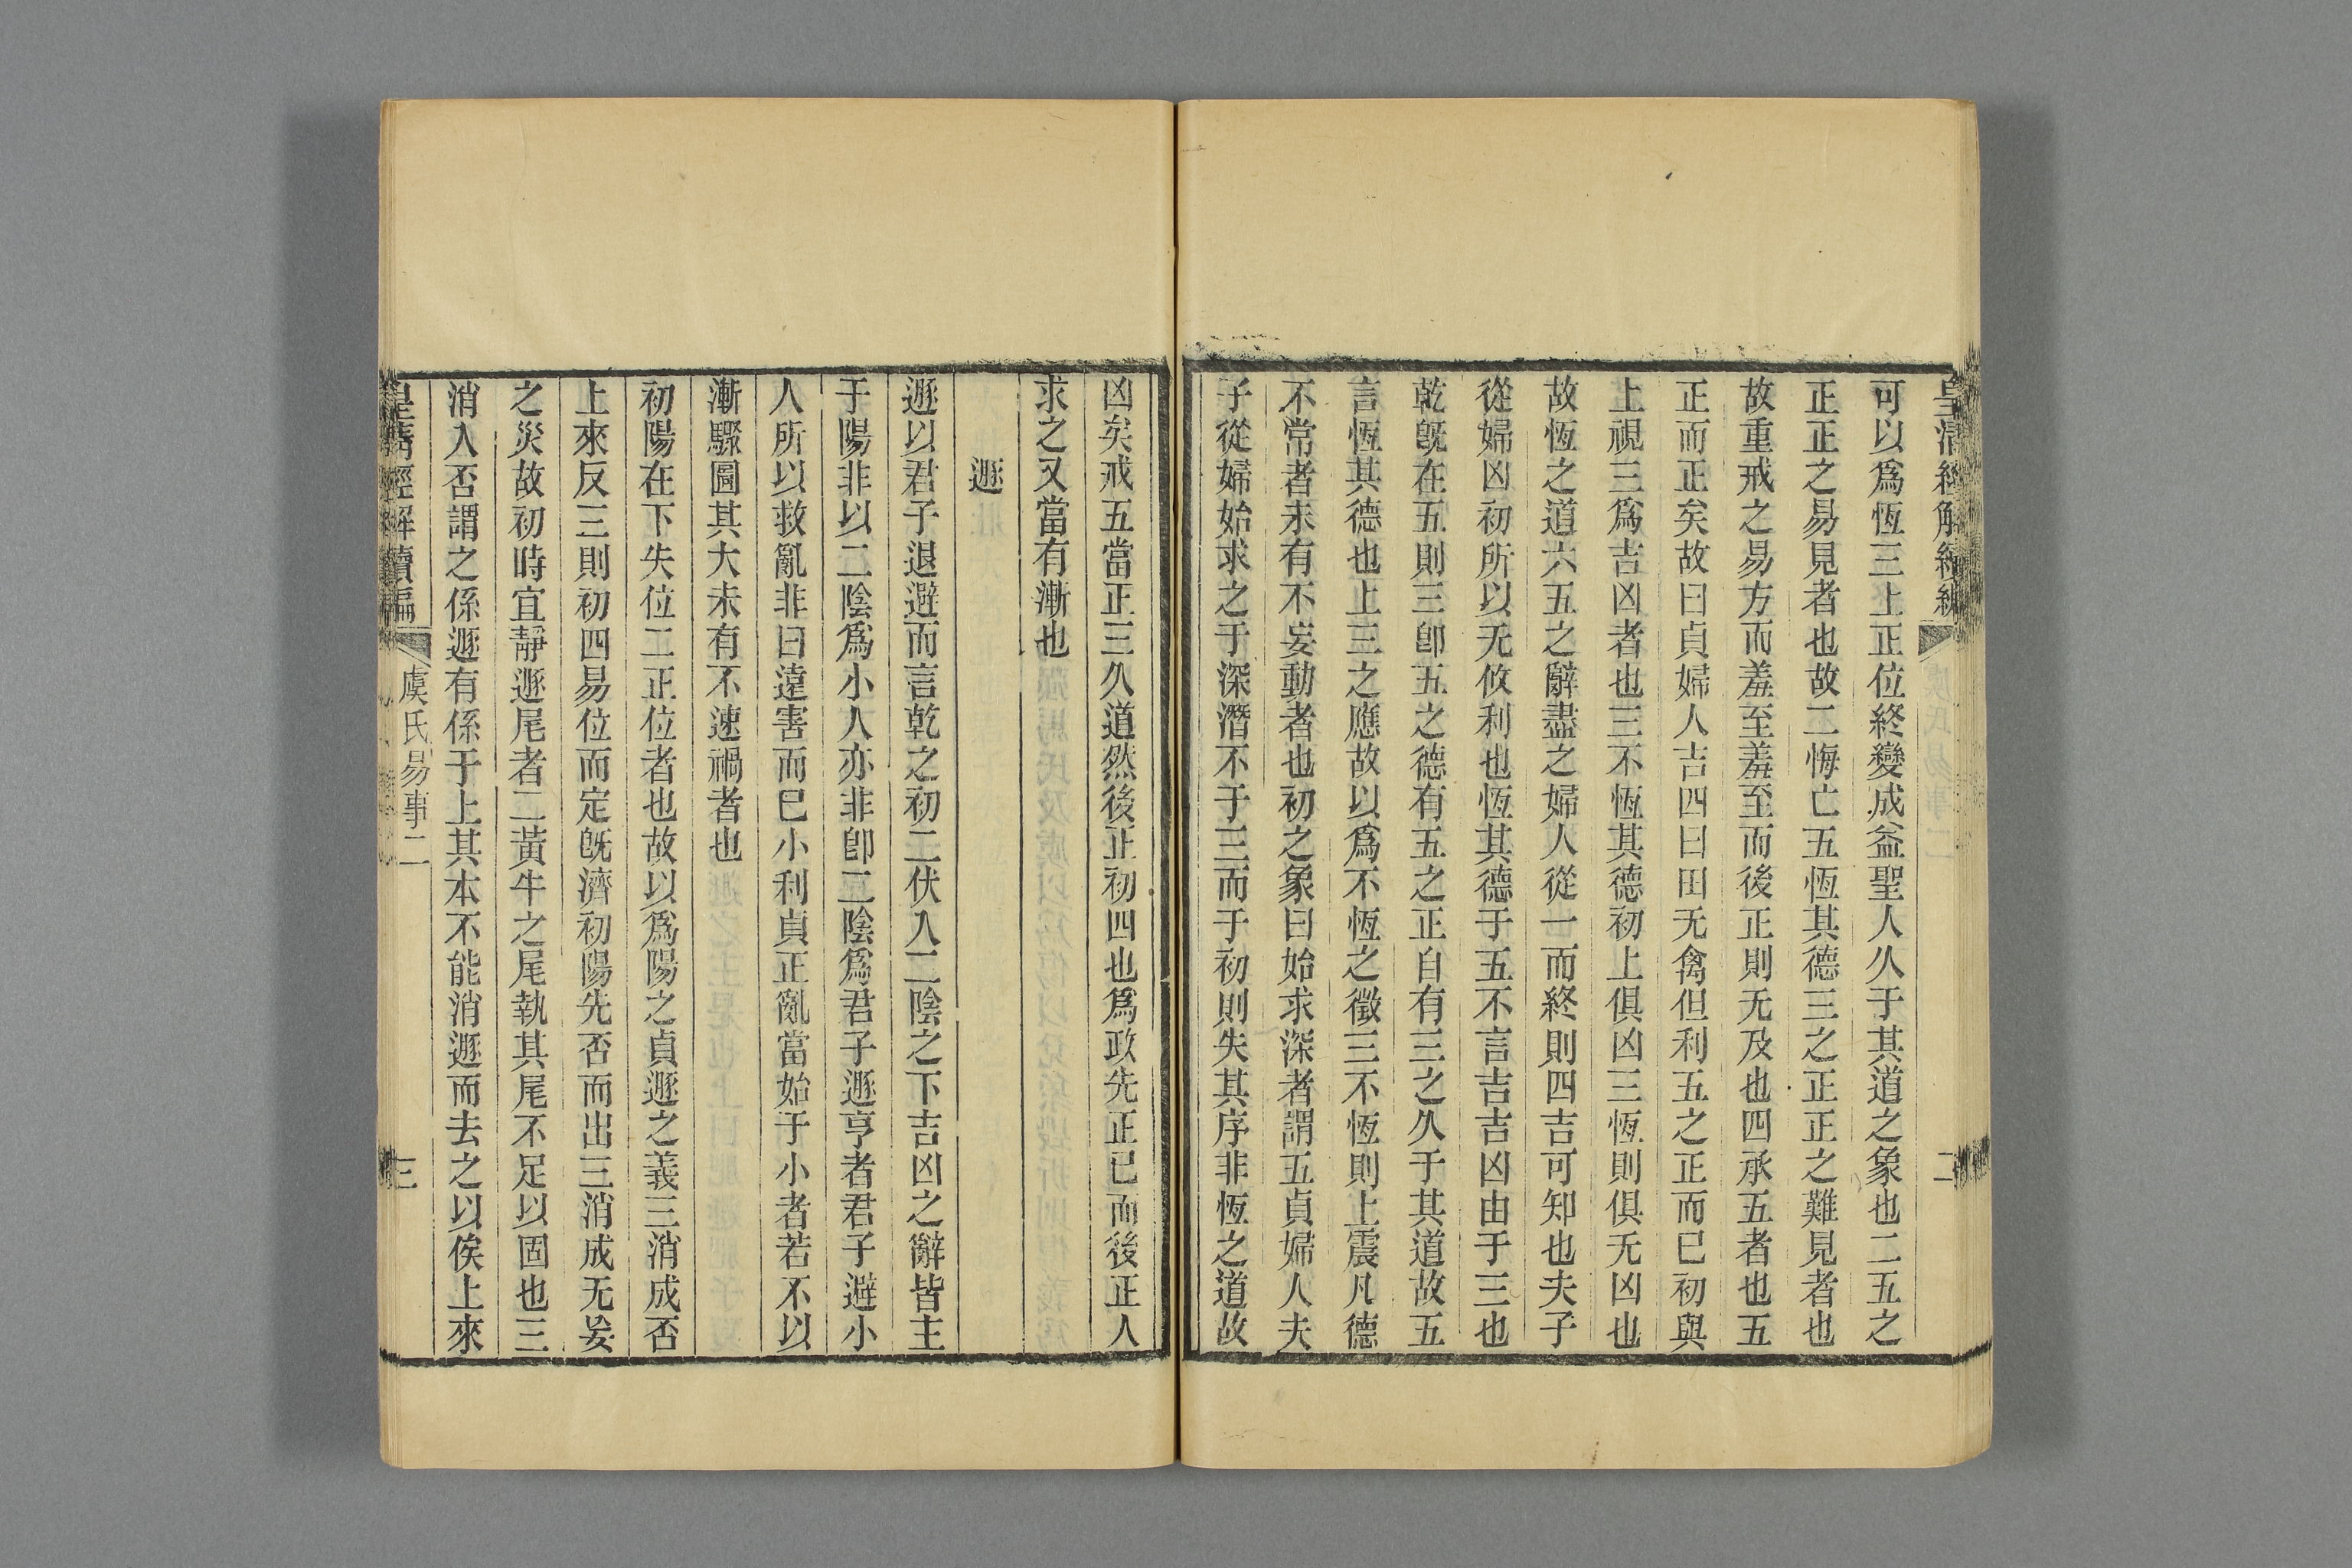 可以爲恆三上正位終變成益聖人久于其道之象也二五之
正正之易見者也故二悔亡五恆其德三之正正之難見者也
故重戒之易方而羞至羞至而後正則无及也四承五者也五
正而正矣故曰貞婦人吉四曰田无禽但利五之正而巳初與
上視三爲吉凶者也三不恆其德初上俱凶三恆則俱无凶也
故恆之道六五之辭盡之婦人從一而終則四吉可知也夫子
從婦凶初所以无攸利也恆其德于五不言吉吉凶由于三也
乾旣在五則三卽五之德有五之正自有三之久于其道故五
言恆其德也上三之應故以爲不恆之徵三不恆則上震凡德
不常者未有不妄動者也初之象曰始求深者謂五貞婦人夫
子從婦始求之于深潛不于三而于初則失其序非恆之道故
二
凶矣戒五當正三久道然後正初四也爲政先正已而後正人
求之又當有漸也
遯
遯以君子退避而言乾之初二伏入二陰之下吉凶之辭皆主
于陽非以二陰爲小人亦非卽二陰爲君子遯亨者君子避小
人所以救亂非曰遠害而巳小利貞正亂當始于小者若不以
漸驟圖其大未有不速禍者也
初陽在下失位二正位者也故以爲陽之貞遯之義三消成否
上來反三則初四易位而定旣濟初陽先否而出三消成无妄
之災故初時宜靜遯尾者二黃牛之尾執其尾不足以固也三
消入否謂之係遯有係于上其本不能消遯而去之以俟上來
皇清經解續編
虞氏易事二
三